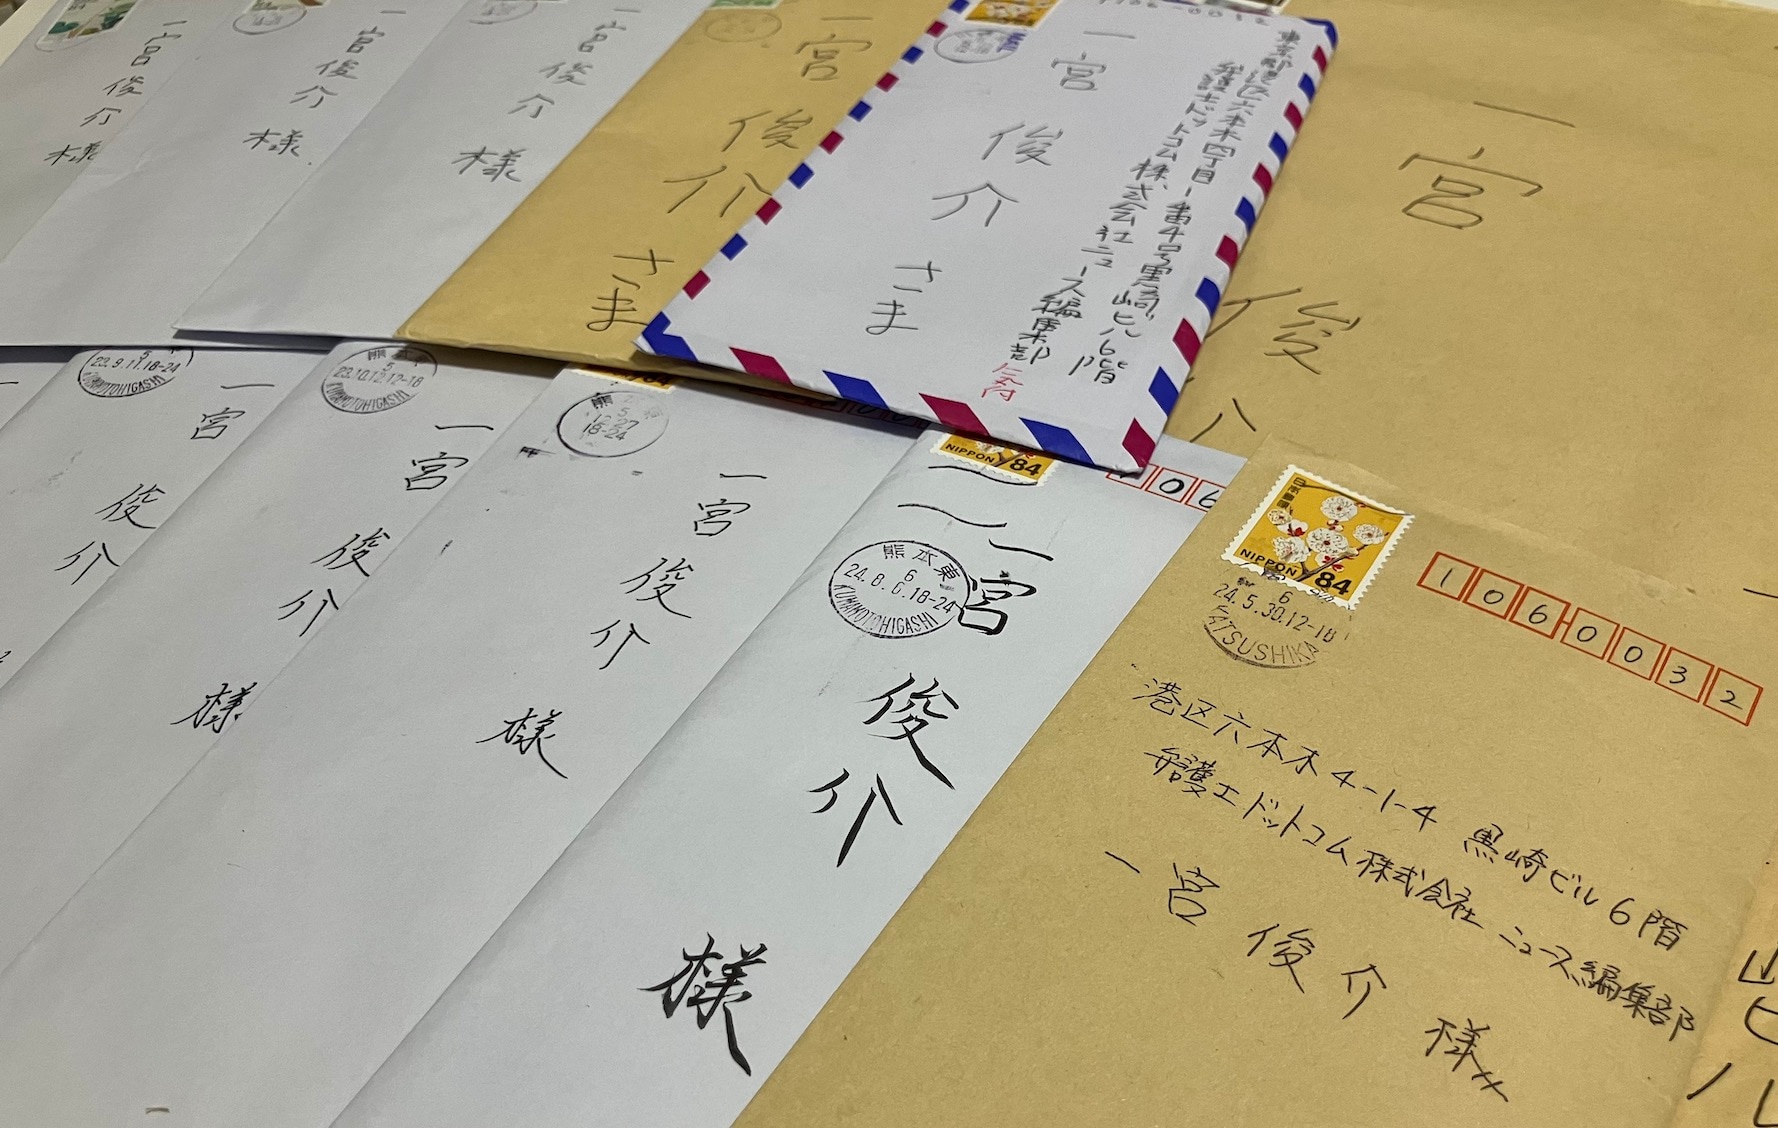 一宮俊介
様
一宮俊介
様
一宮俊介
様
一宮
俊介
さま
東京都港区六本木四丁目1番4号黒崎ビル6階
弁護士ドットコム株式会社ニュース編集部
一宮
俊介
さま
一宮
俊
介
23.9.11.18-24
KUMAMOTOHIGASHI
一宮
俊介
熊本
5
23.10.12.12-18
KUMAMOTOHIGASHI
一宮
俊介
様
熊
5
12.27
18-24
一宮
俊介
様
NIPPON 84
熊本東
6
24.8.6.18-24
KUMAMOTOHIGASHI
一宮
俊介
様
106
日本郵便
NIPPON 84
6
24.5.30.12-18
KATSUSHIKA
1060032
港区六本木4-1-4 黒崎ビル6階
弁護士ドットコム株式会社 ニュース編集部
一宮 俊介 様
ビル